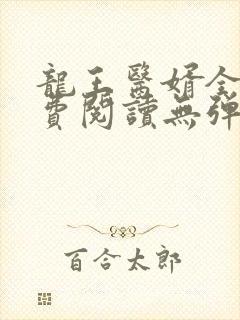 龍王醫婿全
費閱讀無彈
百合太郎